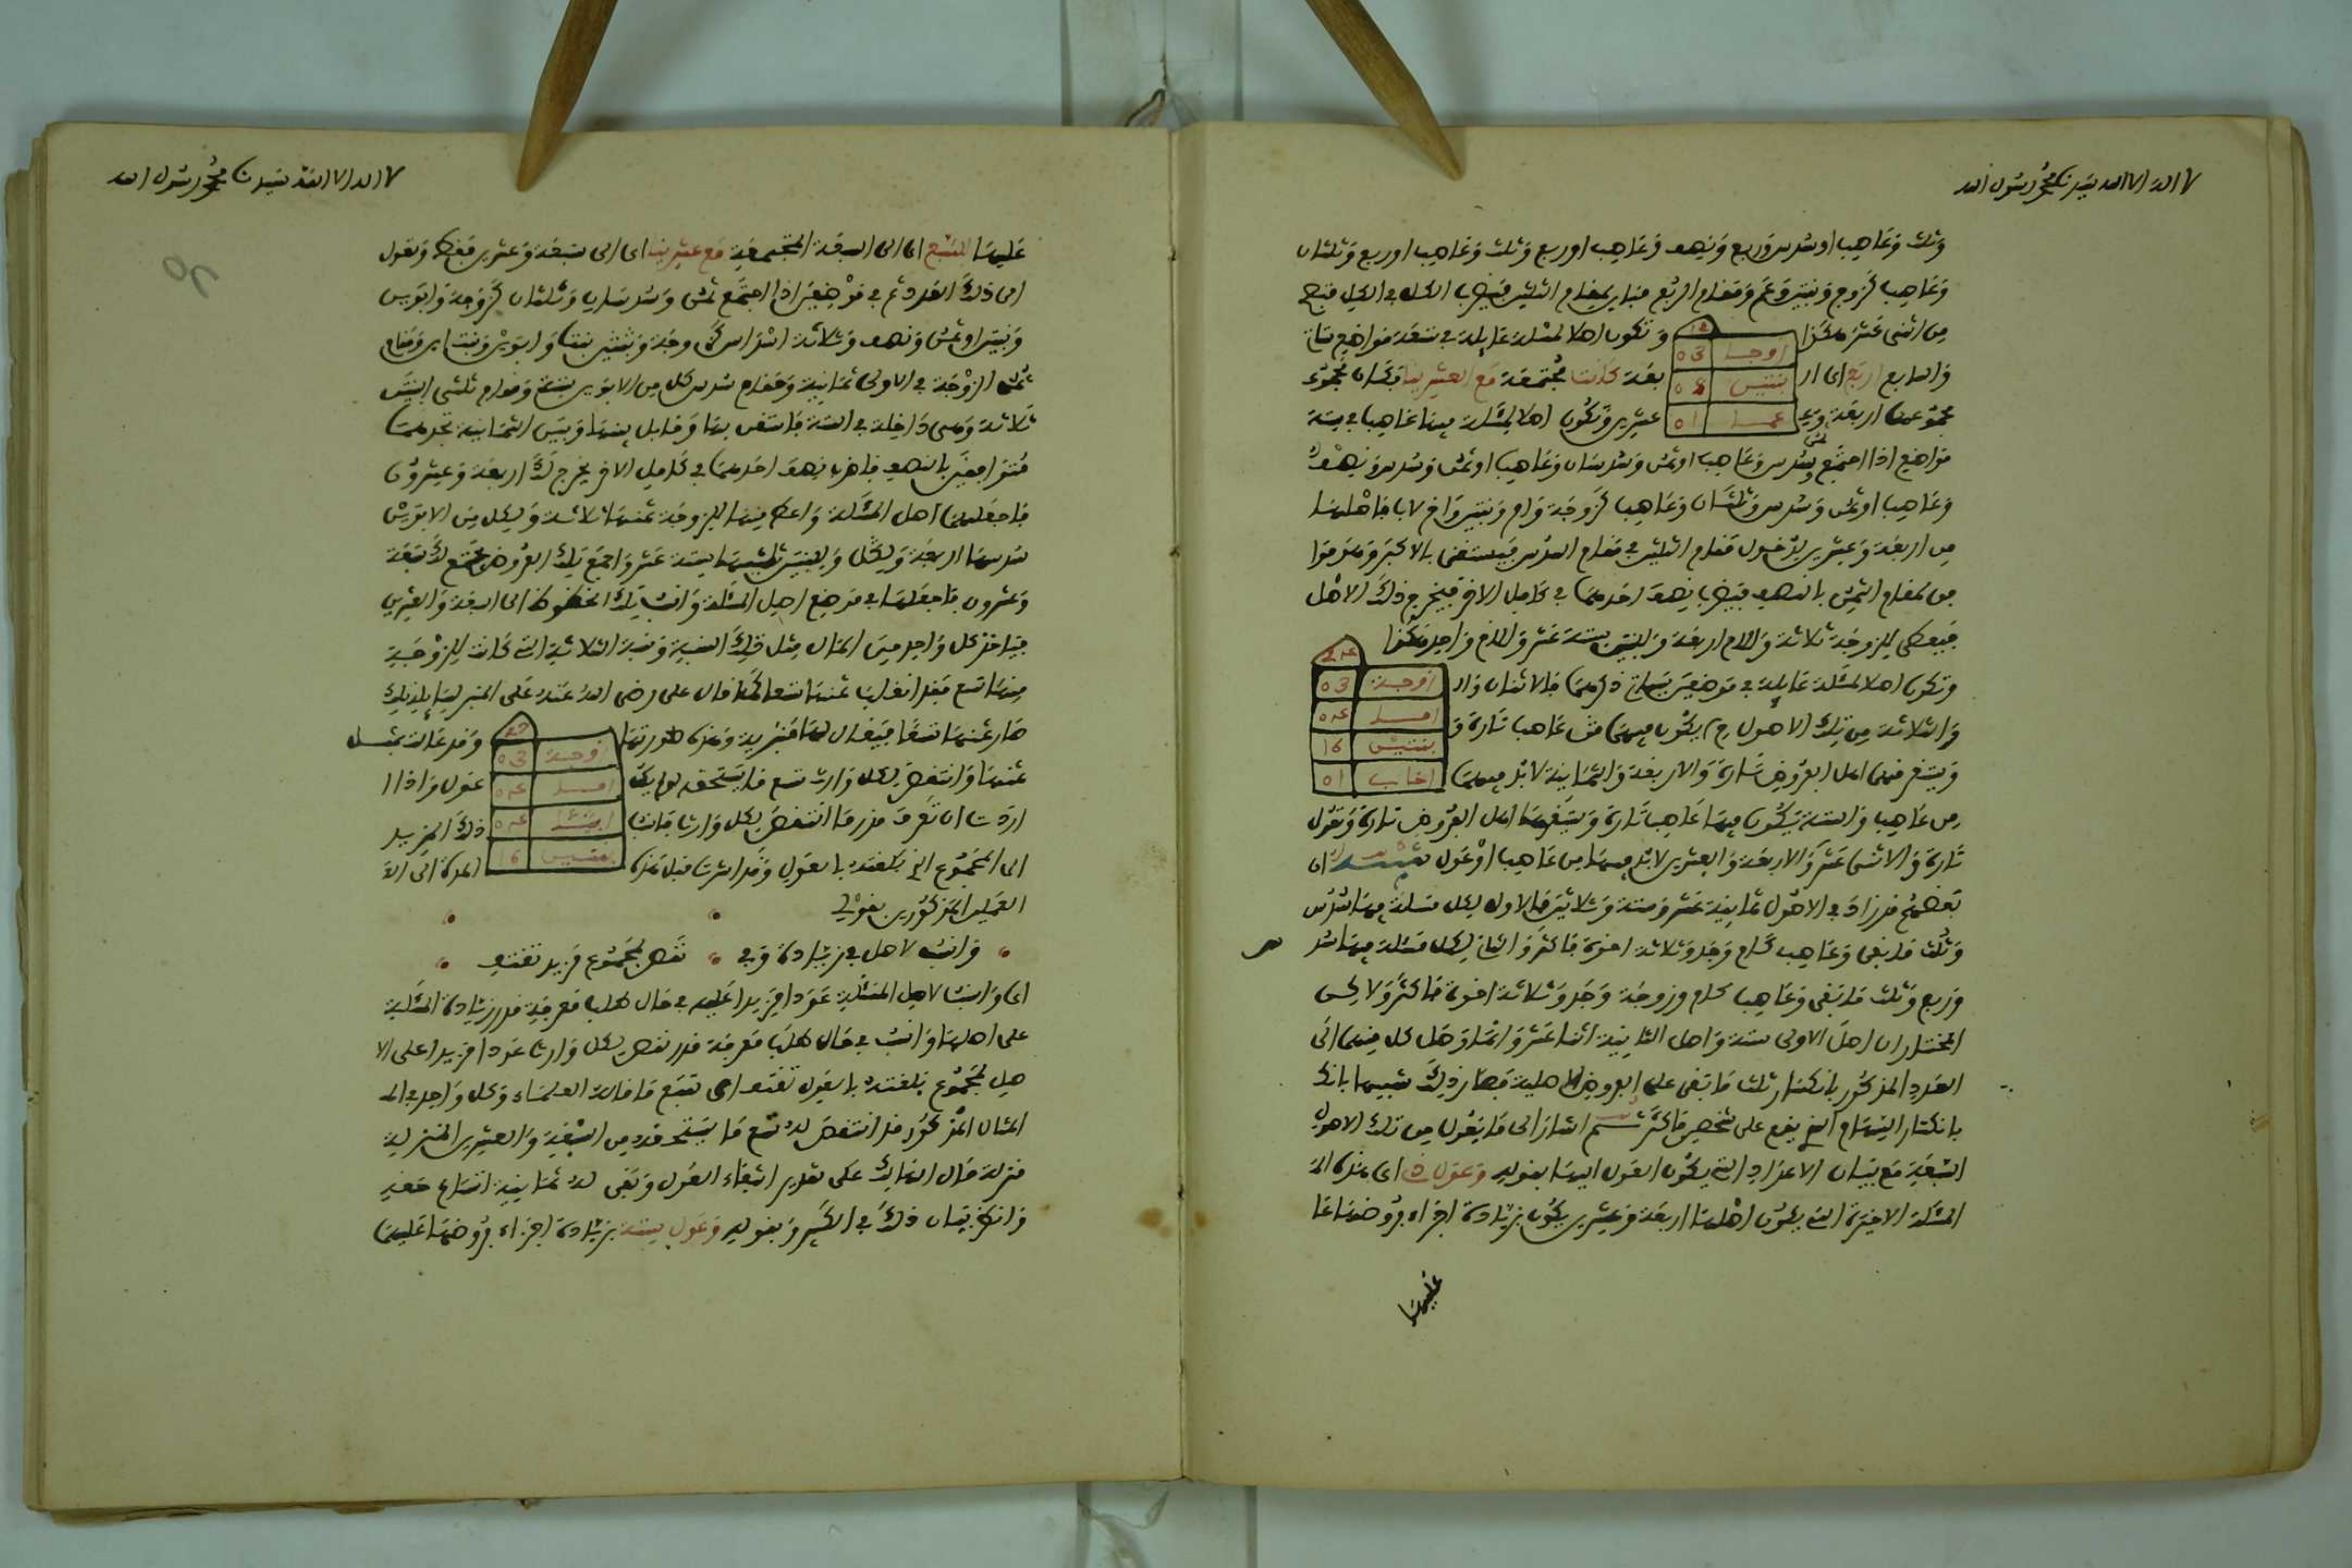 لا اله الا الله سيدنا محمد رسول الله
وثلث وعاصب او سدس وربع ونصف وعاصب او ربع وثلث وعاصب او ربع وثلثان
وعاصب كزوج وبنتين وعم ومقام الربع مباين لمقام الثلثين فيضرب الكل في الكل فتصح
من اثنى عشر هكذا
12
زوج 03
بنتين 08
عم 01
وتكون اصلا لمسئلة عايلة في سبعة مواضع
والرابع اربع اى
بعة كانت مجتمعة مع العشرينا
مجموعهما اربعة و
عشرين وتكون اصلا لمسئلة فيها عاصب في ستة
مواضع اذا اجتمع ثمن وسدس وعاصب او ثمن وسدسان وعاصب او ثمن وسدس ونصف
وعاصب او ثمن وسدس وثلثان وعاصب كزوجة وام وبنتين واخ لاب فاصلها
من اربعة وعشرين لدخول مقام الثلثين في مقام السدس فيستغنى بالاكبر وهو موا
فق لمقام الثمن بالنصف فيضرب نصف احدهما في كامل الاخر فيخرج ذلك الاصل
فيعطى للزوجة ثلاثة وللام اربعة وللبنتين ستة عشر وللاخ واحد هكذا
24
زوجة 03
ام 04
بنتين 16
اخ لاب 01
وتكون اصلا لمسئلة عايلة في موضعين ذكرهما فالاثنان وال
والثلاثة من تلك الاصول يكون فيها عاصب تارة و
ويستغرقهما اهل الفروض تارة والاربعة والثمانية لابد فيهما
من عاصب والستة يكون فيها عاصب تارة ويستغرقها اهل الفروض تارة وتعول
تارة والاثنى عشر والاربعة والعشرين لابد فيهما من عاصب او عول تنبيه ان
بعضهم قد زاد في الاصول ثمانية عشر وستة وثلاثين فالاول لكل مسئلة فيها سدس
وثلث ما بقى وعاصب كام وجد وثلاثة اخوة فاكثر والثانى لكل مسئلة فيها سد
وربع وثلث ما بقى وعاصب كام وزوجة وجد وثلاثة اخوة فاكثر ولاكن
المختار ان اصل الاولى ستة واصل الثانية اثنا عشر وانما وصل كل منهما الى
العدد المذكور بانكسار ثلث ما بقى على الفروض الاصلية فصار ذلك شبيها بانكـ
بانكسار السهام الذى يقع على شخصين فاكثر ثم اشار الى ما يعول من تلك الاصول
السبعة مع بيان الاعداد التى يكون العول اليها بقوله وعول ذى اى هذه الـ
المسئلة الاخيرة التى يكون اصلها اربعة وعشرين يكون بزيادة اجزاء فروضها عا
عليها
لا اله الا الله سيدنا محمد رسول الله
عليها للسبع اى الى السبعة المجتمعة مع عشرينا اى الى سبعة وعشرين فقط وتعول
الى ذلك العدد ثم في موضعين اذا اجتمع ثمن وسدسان وثلثان كزوجة وابوين
وبنتين او ثمن ونصف وثلاثة اسداس كزوجة وبنت وبنت ابن وابوين ومقام
ثمن الزوجة في الاولى ثمانية ومقام سدس كل من الابوين ستة ومقام ثلثى البنتين
ثلاثة وهى داخلة في الستة فاستغن بها وقابل بينها وبين الثمانية تجدهما
متوافقين بالنصف فاضرب نصف احدهما في كامل الاخر يخرج لك اربعة وعشرون
فاجعلها اصل المسئلة واعط منها للزوجة ثمنها ثلاثة ولكل من الابوين
سدسها اربعة وللبنتين ثلثيها ستة عشر واجمع تلك الفروض يجتمع لك سبعة
وعشرون فاجعلها في موضع اصل المسئلة وانسب تلك الحظوظ الى السبعة والعشرين
فياخذ كل واحد من المال مثل تلك النسبة ونسبة الثلاثة التى كانت للزوجة
منها تسع فقد انقلب ثمنها تسعا كما قال على رضى الله عنه على المنبر
صار ثمنها تسعا فيقال لها منبرية وهذه صورتها
27
زوجة 03
ام 04
اب 04
بنتين 16
وقد عالت بمثل
ثمنها وانتقص لكل وارث تسع ما يستحقه لو لم يكن
عول واذا ا
اردت ان تعرف قدر ما انتقص لكل وارث فانسب
ذلك المزيد
الى المجموع الذى بلغته بالعول وقد اشرت
العملين المذكورين بقولى
وانسب لاصل في زيادة وفي نقص لمجموع مزيد تقتف
اى وانسب لاصل المسئلة عددا مزيدا عليه في حال طلب معرفة قدر زيادة المسئلة
على اصلها وانسب في حال طلب معرفة قدر نقص لكل وارث عددا مزيدا على الا
صل لمجموع بلغته بالعول تقتف اى تتبع ما قاله العلماء وكل واحد في الـ
المثال المذكور قد انتقص له تسع ما يستحقه من السبعة والعشرين المنزلة
منزلة مال الهالك على تقدير انتفاء العول وبقى له ثمانية اتساع حقه
وانظر بيان ذلك في الكبير وبقوله وعول ستة بزيادة اجزاء فروضها عليها